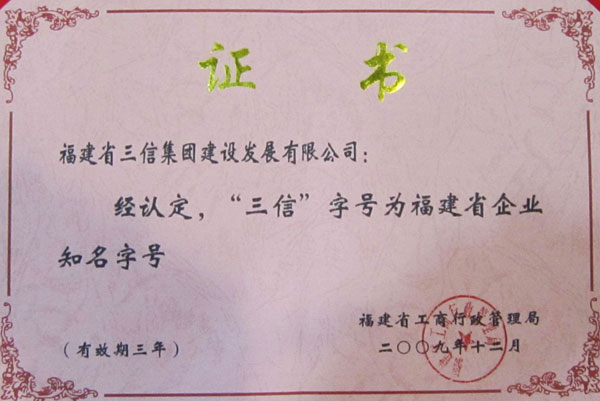 证 书
福建省三信集团建设发展有限公司：
经认定，“三信”字号为福建省企业
知名字号
福建省工商行政管理局
（有效期三年）
二〇〇九年十二月